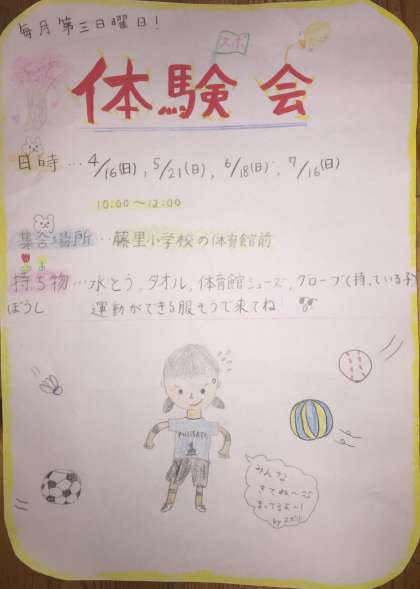 毎月第三日曜日!
スポ
体験会
日時…4/16(日), 5/21(日), 6/18(日), 7/16(日)
10:00〜12:00
集合場所…藤里小学校の体育館前
持ち物…水とう, タオル, 体育館シューズ, グローブ(持っている子)
ぼうし
運動ができる服そうで来てね
みんな
きてね〜
まってるよ〜!
by スポ